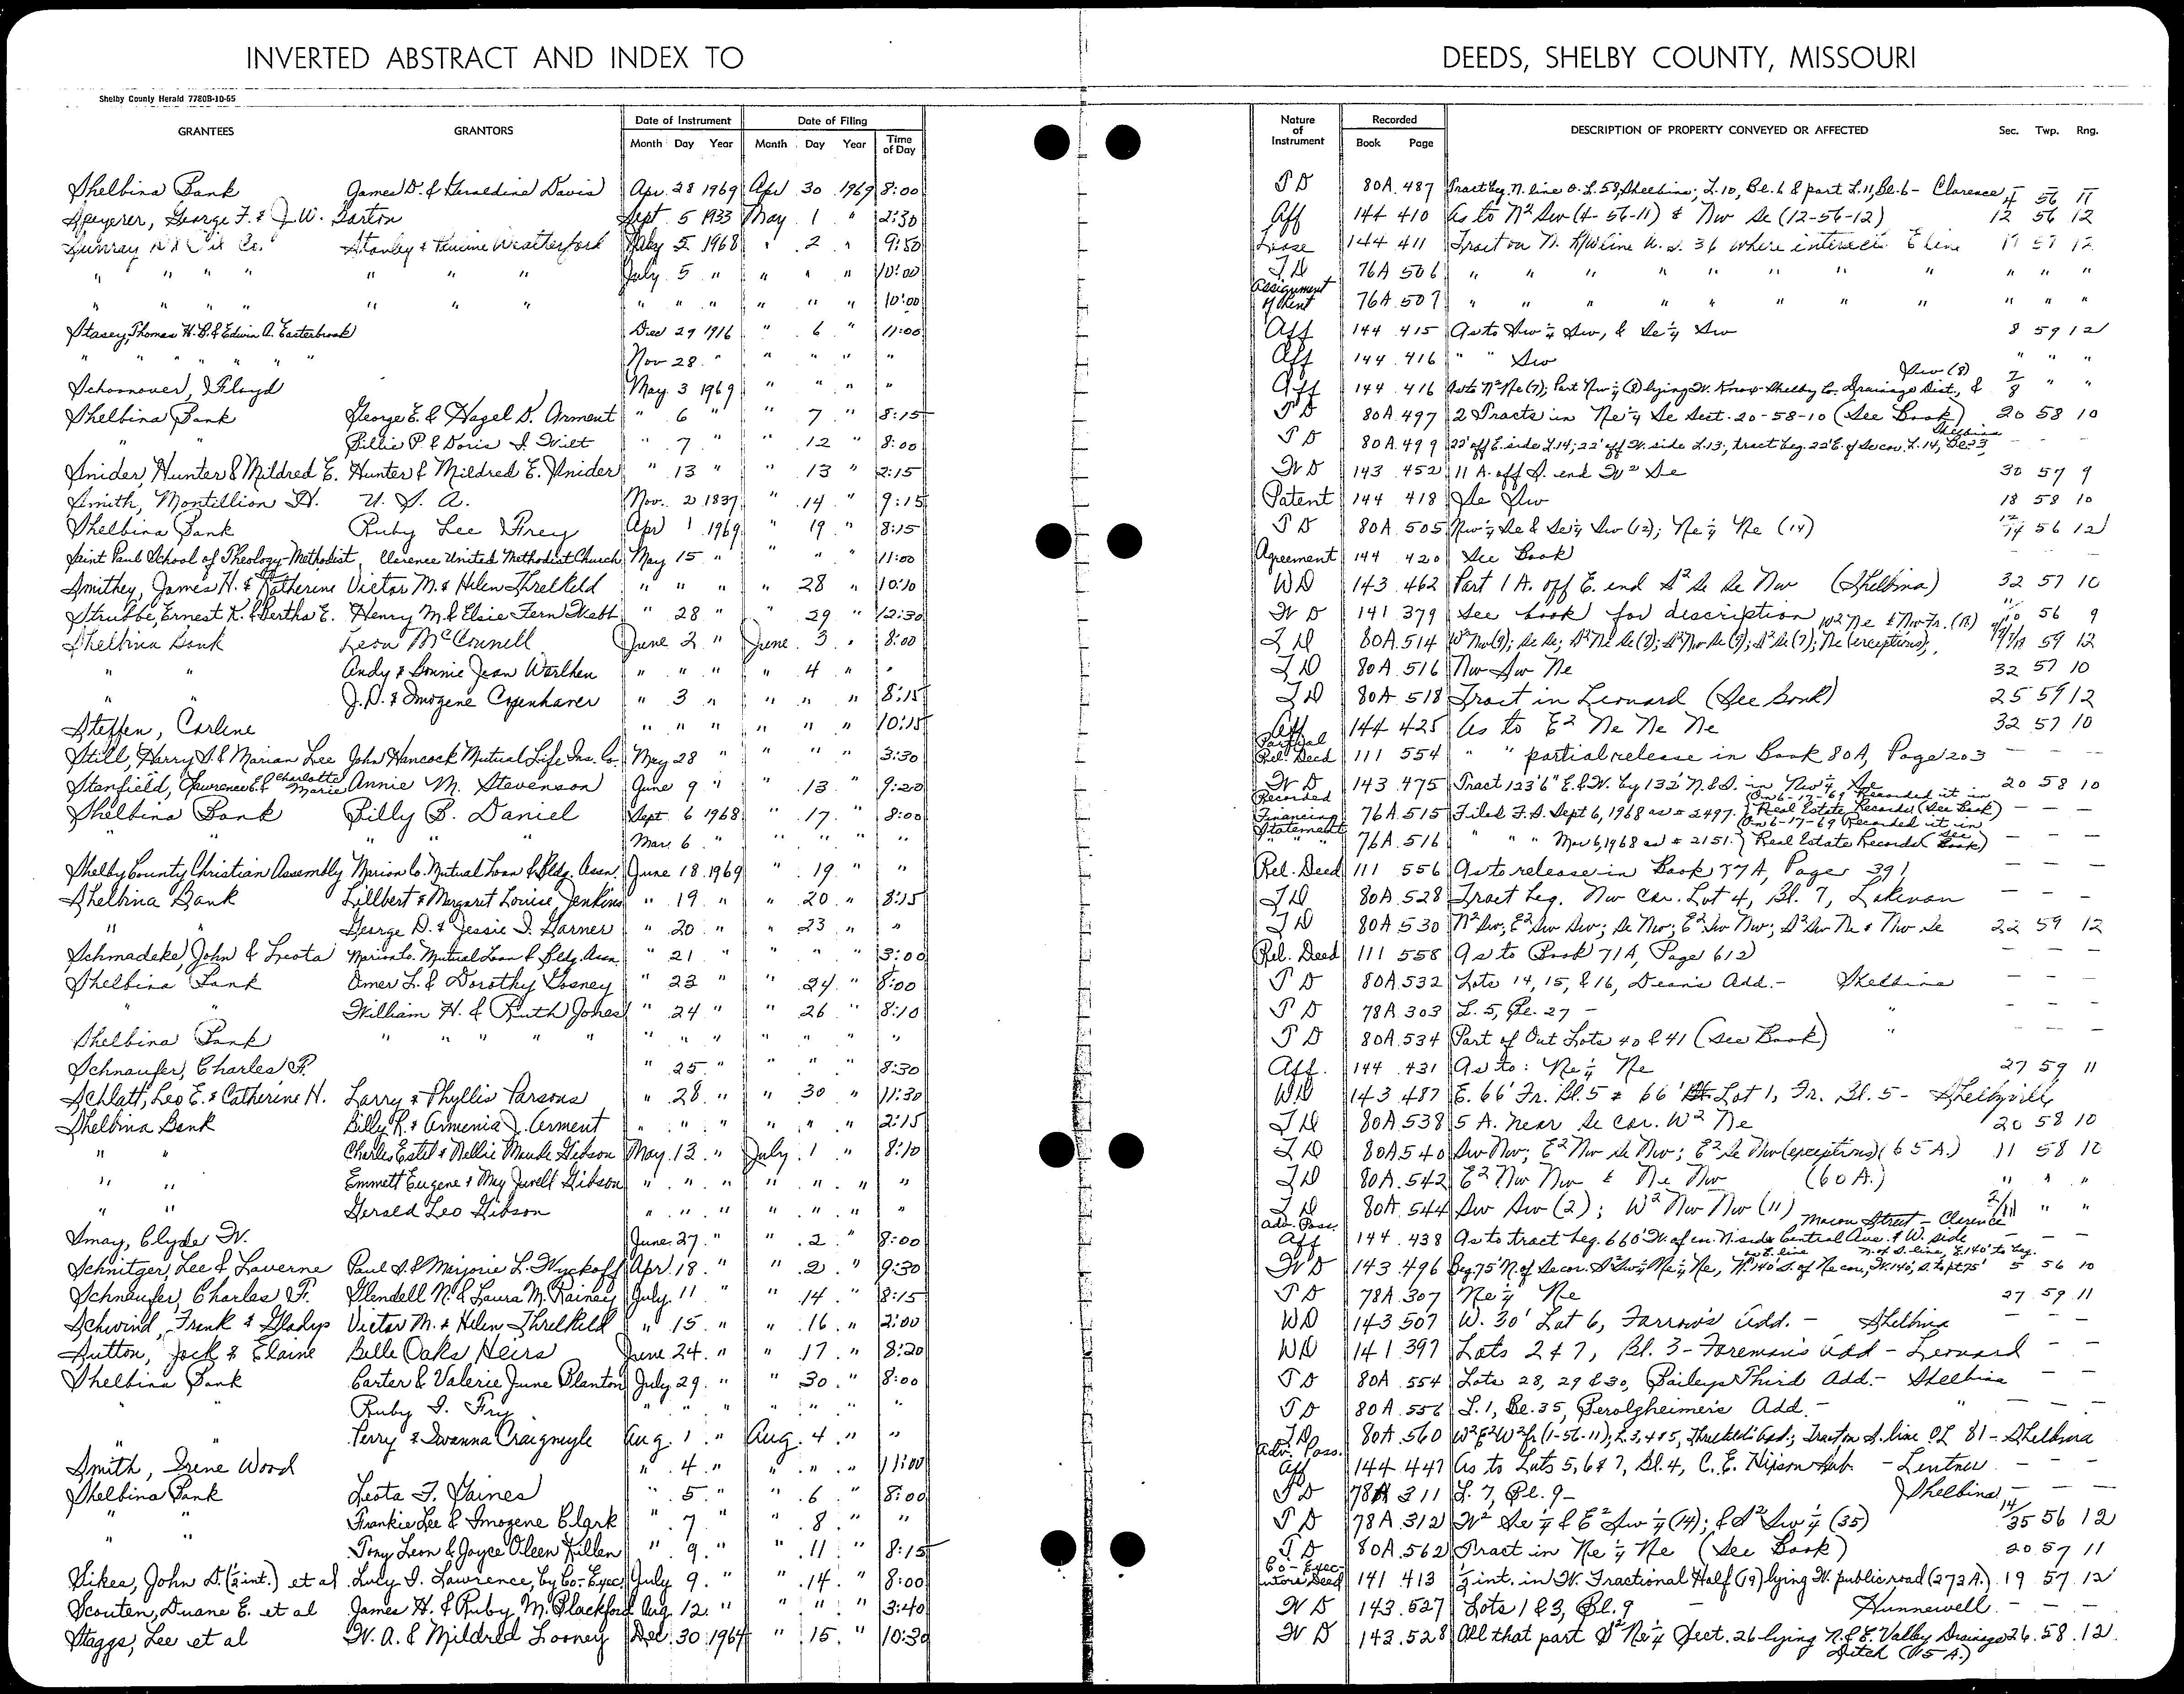 INVERTED ABSTRACT AND INDEX TO DEEDS, SHELBY COUNTY, MISSOURI
Shelby County Herald 7780B-10-65
GRANTEES GRANTORS Date of Instrument Date of Filing Nature of Instrument Recorded DESCRIPTION OF PROPERTY CONVEYED OR AFFECTED Sec. Twp. Rng.
Month Day Year Month Day Year Time of Day Book Page
Shelbina Bank James D. & Geraldine Davis Apr. 28 1969 Apr 30 1969 8:00 T D 80A 487 Tract beg. N. line O.L. 58, Shelbina; L.10, Bl.6 & part L.11, Bl.6 - Clarence 56 11
Speyerer, George F. & J.W. Garton Sept. 5 1933 May 1 " 2:30 Aff 144 410 As to N² Sw (4-56-11) & Nw Se (12-56-12) 12 56 12
Stanley & Weatherford May 5 1968 " 2 " 9:50 Lease 144 411 Tract on N. R/W line U.S. 36 where intersects E line 57 12
" " " " " " " July 5 " " " " 10:00 T D 76A 506 " " " " " " " " " " "
" " " " " " " " " " " " " 10:00 Assignment of Rent 76A 507 " " " " " " " " " " "
Stasey, Thomas H. B. & Edwin A. Easterbrook Dec 29 1916 " 6 " 11:00 Aff 144 415 As to Sw¼ Sw, & Se¼ Sw 8 59 12
" " " " " " Nov 28 " " " " " Aff 144 416 " " Sw " " "
Schoonover, Floyd May 3 1969 " " " " Aff 144 416 As to N² Ne (7); Part Nw¼ (8) lying W. Knox-Shelby Co. Drainage Dist., & Sw (8) 7/8 " "
Shelbina Bank George E. & Hazel D. Arment " 6 " " 7 " 8:15 T D 80A 497 2 Tracts in Ne¼ Se Sect. 20-58-10 (See Book) 20 58 10
" " Billie P. & Doris J. Wilt " 7 " " 12 " 8:00 T D 80A 499 22' off E. side L.14; 22' off W. side L.13; tract beg. 22' E. of Se cor. L.14, Bl. 23 Shelbina - - -
Snider, Hunter & Mildred E. Hunter & Mildred E. Snider " 13 " " 13 " 2:15 W D 143 452 11 A. off S. end W² Se 30 57 9
Smith, Montillion H. U. S. A. Nov. 2 1837 " 14 " 9:15 Patent 144 418 Se Sw 18 58 10
Shelbina Bank Ruby Lee Frey Apr 1 1969 " 19 " 8:15 T D 80A 505 Nw¼ Se & Se¼ Sw (12); Ne¼ Ne (14) 12/14 56 12
Saint Paul School of Theology-Methodist, Clarence United Methodist Church May 15 " " " " 11:00 Agreement 144 420 See Book - - -
Smithey, James H. & Katherine Victor M. & Helen Threlkeld " " " " 28 " 10:10 WD 143 462 Part 1 A. off E. end S² Se Se Nw (Shelbina) 32 57 10
Strubbe, Ernest K. & Bertha E. Henry M. & Elsie Fern Webb " 28 " " 29 " 12:30 W D 141 379 See book for discription 56 9
Shelbina Bank Leon McConnell June 2 " June 3 " 8:00 T D 80A 514 W² Nw (9); Se Se; S² Ne Se (8); S² Nw Se (9); S² Se (7); Ne (exceptions), W² Ne & Nw Fr. (18) 59 12
" " Andy & Bonnie Jean Worthen " " " " 4 " " T D 80A 516 Nw Sw Ne 32 57 10
J. D. & Imogene Copenhaver " 3 " " " " 8:15 T D 80A 518 Tract in Leonard (See Book) 25 59 12
Steffen, Carline " " " " " " 10:15 Aff 144 425 As to E² Ne Ne Ne 32 57 10
Still, Harry S. & Marian Lee John Hancock Mutual Life Ins. Co. May 28 " " " " 3:30 Partial Rel. Deed 111 554 " " partial release in Book 80A, Page 203 - - -
Stanfield, Lawrence E. & Charlotte Marie Annie M. Stevenson June 9 " " 13 " 9:20 W D 143 475 Tract 123'6" E.&W. by 132' N.&S. in Nw¼ Se 20 58 10
Shelbina Bank Billy B. Daniel Sept. 6 1968 " 17 " 8:00 Recorded Financing Statement 76A 515 Filed F.S. Sept 6, 1968 as # 2497. } On 6-17-69 Recorded it in Real Estate Records (See Book) - - -
" " " " Mar. 6 " " " " " " " 76A 516 " " Mar 6, 1968 as # 2151. } On 6-17-69 Recorded it in Real Estate Records (See Book) - - -
Shelby County Christian Assembly Marion Co. Mutual Loan & Bldg. Assn. June 18 1969 " 19 " " Rel. Deed 111 556 As to release in Book 77A, Page 391 - - -
Shelbina Bank Lillbert & Margaret Louise Jenkins " 19 " " 20 " 8:15 T D 80A 528 Tract beg. Nw cor. Lot 4, Bl. 7, Lakenan - -
" George D. & Jessie I. Garner " 20 " " 23 " " T D 80A 530 N² Sw; E² Sw Sw; Se Nw; E² Sw Nw; S² Sw Ne & Nw Se 22 59 12
Schmadeke, John & Leota Marion Co. Mutual Loan & Bldg. Assn. " 21 " " " " 3:00 Rel. Deed 111 558 As to Book 71A, Page 612 - - -
Shelbina Bank Omer L. & Dorothy Gosney " 23 " " 24 " 8:00 T D 80A 532 Lots 14, 15, & 16, Dean's Add. - Shelbina - - -
" " William H. & Ruth Jones " 24 " " 26 " 8:10 T D 78A 303 L. 5, Bl. 27 - " - - -
Shelbina Bank " " " " " " " " " " " T D 80A 534 Part of Out Lots 40 & 41 (See Book) " - - -
Schnaufer, Charles F. " 25 " " " " 8:30 Aff. 144 431 As to: Ne¼ Ne 27 59 11
Schlatt, Leo E. & Catherine H. Larry & Phyllis Parsons " 28 " " 30 " 11:30 WD 143 487 E. 66' Fr. Bl. 5 & 66' Lot 1, Fr. Bl. 5 - Shelbyville
Shelbina Bank Billy R. & Armenia J. Arment " " " " " " 2:15 T D 80A 538 5 A. near Se cor. W² Ne 20 58 10
" " Charles Estil & Nellie Maude Gibson May 13 " July 1 " 8:10 T D 80A 540 Sw Nw; E² Nw Se Nw; E² Se Nw (exceptions) (65 A.) 11 58 10
" " Emmett Eugene & May Jewell Gibson " " " " " " " T D 80A 542 E² Nw Nw & Ne Nw (60 A.) " " "
" " Gerald Leo Gibson " " " " " " " T D 80A 544 Sw Sw (2); W² Nw Nw (11) 2/11 " "
Smay, Clyde W. June 27 " " 2 " 8:00 Adv. Poss. Aff 144 438 As to tract beg. 660' W. of in. N. side Central Ave. & W. side Macon Street - Clarence - - -
Schnitzer, Lee & Laverne Paul S. & Marjorie L. Wyckoff Apr. 18 " " 2 " 9:30 W D 143 496 Beg. 75' N. of Se cor. S² Sw¼ Ne¼ Ne, N. 140' S. of Ne cor., W. 140', S. to pt. 75' N. of S. line, E. 140' to beg. 5 56 10
Schnaufer, Charles F. Glendell N. & Laura M. Rainey July 11 " " 14 " 8:15 T D 78A 307 Ne¼ Ne 27 59 11
Schwind, Frank & Gladys Victor M. & Helen Threlkeld " 15 " " 16 " 2:00 WD 143 507 W. 30' Lot 6, Farrow's Add. - Shelbina - -
Sutton, Jack & Elaine Belle Oaks Heirs June 24 " " 17 " 8:20 WD 141 397 Lots 2 & 7, Bl. 3 - Foreman's Add - Leonard - -
Shelbina Bank Carter & Valerie June Blanton July 29 " " 30 " 8:00 T D 80A 554 Lots 28, 29 & 30, Baileys Third Add. - Shelbina - - -
" " Ruby I. Fry " " " " " " " T D 80A 556 L. 1, Bl. 35, Gerolzheimer's Add. - " - - -
" " Perry & Iwanna Craigmyle Aug. 1 " Aug. 4 " " T D 80A 560 W² E² W² fr. (1-56-11); L. 3, 4 & 5, Threlkeld Add.; Tract on S. line O.L. 81 - Shelbina
Smith, Irene Wood " 4 " " " " 11:00 Adv. Poss. Aff 144 447 As to Lots 5, 6 & 7, Bl. 4, C. E. Hixson Sub. - Lentner - - -
Shelbina Bank Leota F. Gaines " 5 " " 6 " 8:00 T D 78A 311 L. 7, Bl. 9 - Shelbina - - -
" " Frankie Lee & Imogene Clark " 7 " " 8 " " T D 78A 312 W² Se¼ & E² Sw¼ (14); & S² Sw¼ (35) 14/35 56 12
" " Tony Leon & Joyce Oleen Killen " 9 " " 11 " 8:15 T D 80A 562 Tract in Ne¼ Ne (See Book) 20 57 11
Sikes, John D. (½ int.) et al Lucy I. Lawrence, by Co-Exec. July 9 " " 14 " 8:00 Co-Executors Deed 141 413 ½ int. in W. Fractional Half (19) lying W. public road (272 A.) 19 57 12
Scouten, Duane E. et al James H. & Ruby M. Blackford Aug. 12 " " " " 3:40 W D 143 527 Lots 1 & 3, Bl. 9 - Hunnewell - - -
Staggs, Lee et al W. A. & Mildred Looney Dec. 30 1964 " 15 " 10:30 W D 143 528 All that part S² Ne¼ Sect. 26 lying N. & E. Valley Drainage Ditch (15 A.) 26 58 12